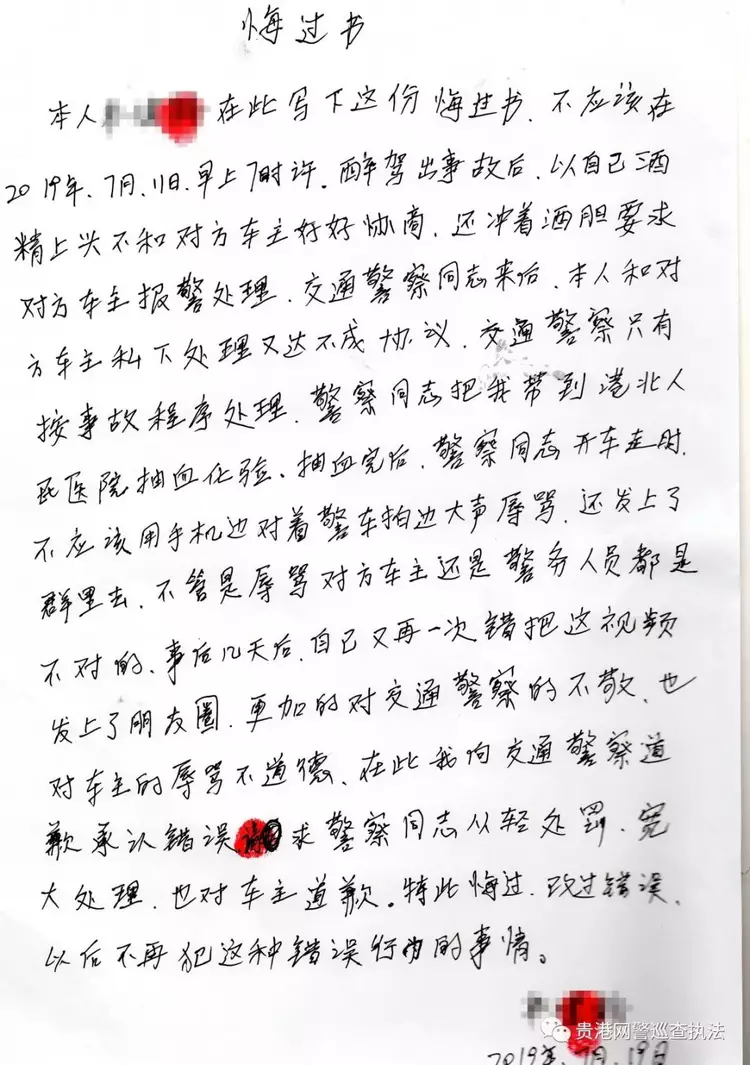 悔过书
本人在此写下这份悔过书、不应该在
2019年、7月、11日、早上7时许。醉驾出事故后、以自己酒
精上头不和对方车主好好协商、还冲着酒胆要求
对方车主报警处理、交通警察同志来后、本人和对
方车主私下处理又达不成协议、交通警察只有
按事故程序处理、警察同志把我带到港北人
民医院抽血化验、抽血完后、警察同志开车走时、
不应该用手机边对着警车拍边大声辱骂、还发上了
群里去、不管是辱骂对方车主还是警务人员都是
不对的、事后几天后、自己又再一次错把这视频
发上了朋友圈、更加的对交通警察的不敬、也
对车主的辱骂不道德、在此我向交通警察道
歉承认错误求警察同志从轻处罚、宽
大处理、也对车主道歉。特此悔过、改过错误、
以后不再犯这种错误行为的事情。
贵港网警巡查执法
2019年、7月、19日